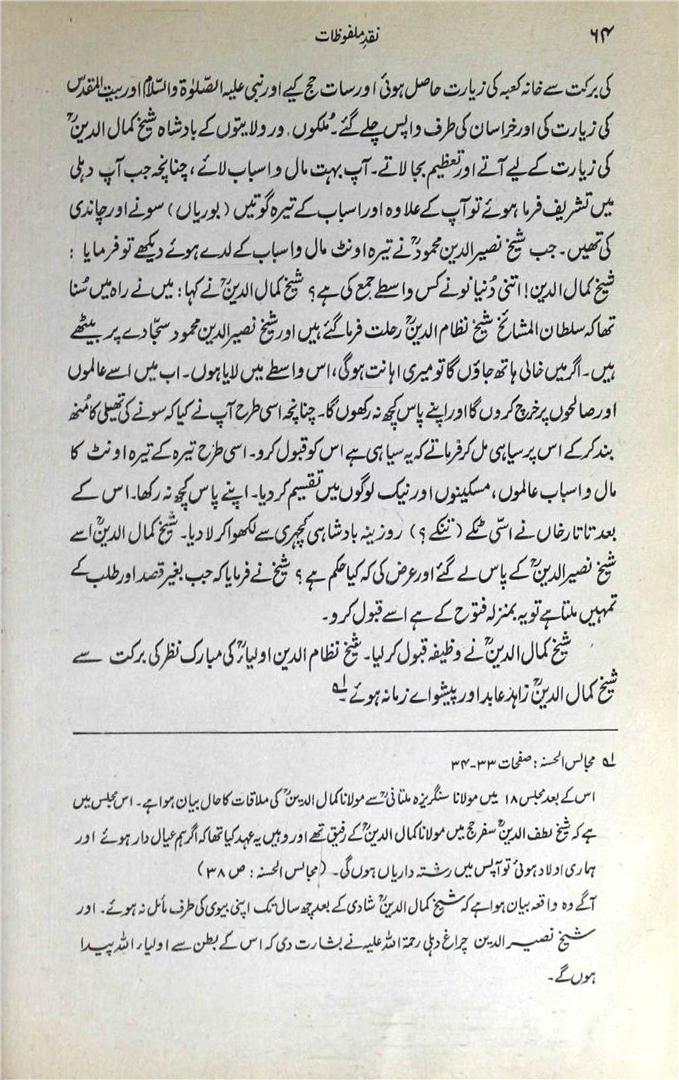 ۶۴ نقدِ ملفوظات
کی برکت سے خانہ کعبہ کی زیارت حاصل ہوئی اور سات حج کیے اور نبی علیہ الصّلوٰۃ والسّلام اور بیت المقدس
کی زیارت کی اور خراسان کی طرف واپس چلے گئے۔ مُلکوں، ور ولایتوں کے بادشاہ شیخ کمال الدینؒ
کی زیارت کے لیے آتے اور تعظیم بجا لاتے۔ آپ بہت مال و اسباب لائے، چنانچہ جب آپ دہلی
میں تشریف فرما ہوئے تو آپ کے علاوہ اور اسباب کے تیرہ گوتیں (بوریاں) سونے اور چاندی
کی تھیں۔ جب شیخ نصیر الدین محمودؒ نے تیرہ اونٹ مال و اسباب کے لدے ہوئے دیکھے تو فرمایا :
شیخ کمال الدین! اتنی دُنیا تونے کس واسطے جمع کی ہے؟ شیخ کمال الدینؒ نے کہا: میں نے راہ میں سُنا
تھا کہ سلطان المشائخ شیخ نظام الدینؒ رحلت فرما گئے ہیں اور شیخ نصیر الدین محمود سجّادے پر بیٹھے
ہیں۔ اگر میں خالی ہاتھ جاؤں گا تو میری اہانت ہوگی، اس واسطے میں لایا ہوں۔ اب میں اسے عالموں
اور صالحوں پر خرچ کروں گا اور اپنے پاس کچھ نہ رکھوں گا۔ چنانچہ اسی طرح آپ نے کیا کہ سونے کی تھیلی کا مُنھ
بند کر کے اس پر سیاہی مل کر فرماتے کہ یہ سیاہی ہے اس کو قبول کرو۔ اسی طرح تیرہ کے تیرہ اونٹ کا
مال و اسباب عالموں، مسکینوں اور نیک لوگوں میں تقسیم کر دیا۔ اپنے پاس کچھ نہ رکھا۔ اس کے
بعد تاتار خاں نے اسّی ٹکے (تنکے؟) روزینہ بادشاہی کچہری سے لکھوا کر لا دیا۔ شیخ کمال الدینؒ اسے
شیخ نصیر الدینؒ کے پاس لے گئے اور عرض کی کہ کیا حکم ہے؟ شیخ نے فرمایا کہ جب بغیر قصد اور طلب کے
تمہیں ملتا ہے تو یہ بمنزلہ فتوح کے ہے اسے قبول کرو۔
شیخ کمال الدینؒ نے وظیفہ قبول کر لیا۔ شیخ نظام الدین اولیارؒ کی مبارک نظر کی برکت سے
شیخ کمال الدینؒ زاہد عابد اور پیشواے زمانہ ہوئے۔ لہ
لہ مجالس الحسنہ : صفحات ۳۳-۳۴
اس کے بعد مجلس ۱۸ میں مولانا سنگریزہ ملتانیؒ سے مولانا کمال الدینؒ کی ملاقات کا حال بیان ہوا ہے۔ اس مجلس میں
ہے کہ شیخ لطف الدینؒ سفر حج میں مولانا کمال الدینؒ کے رفیق تھے اور وہیں یہ عہد کیا تھا کہ اگر ہم عیال دار ہوئے اور
ہماری اولاد ہوئی تو آپس میں رشتہ داریاں ہوں گی۔ (مجالس الحسنہ : ص ۳۸)
آگے وہ واقعہ بیان ہوا ہے کہ شیخ کمال الدینؒ شادی کے بعد چھ سال تک اپنی بیوی کی طرف مائل نہ ہوئے۔ اور
شیخ نصیر الدین چراغ دہلی رحمۃ اللہ علیہ نے بشارت دی کہ اس کے بطن سے اولیاء اللہ پیدا
ہوں گے۔